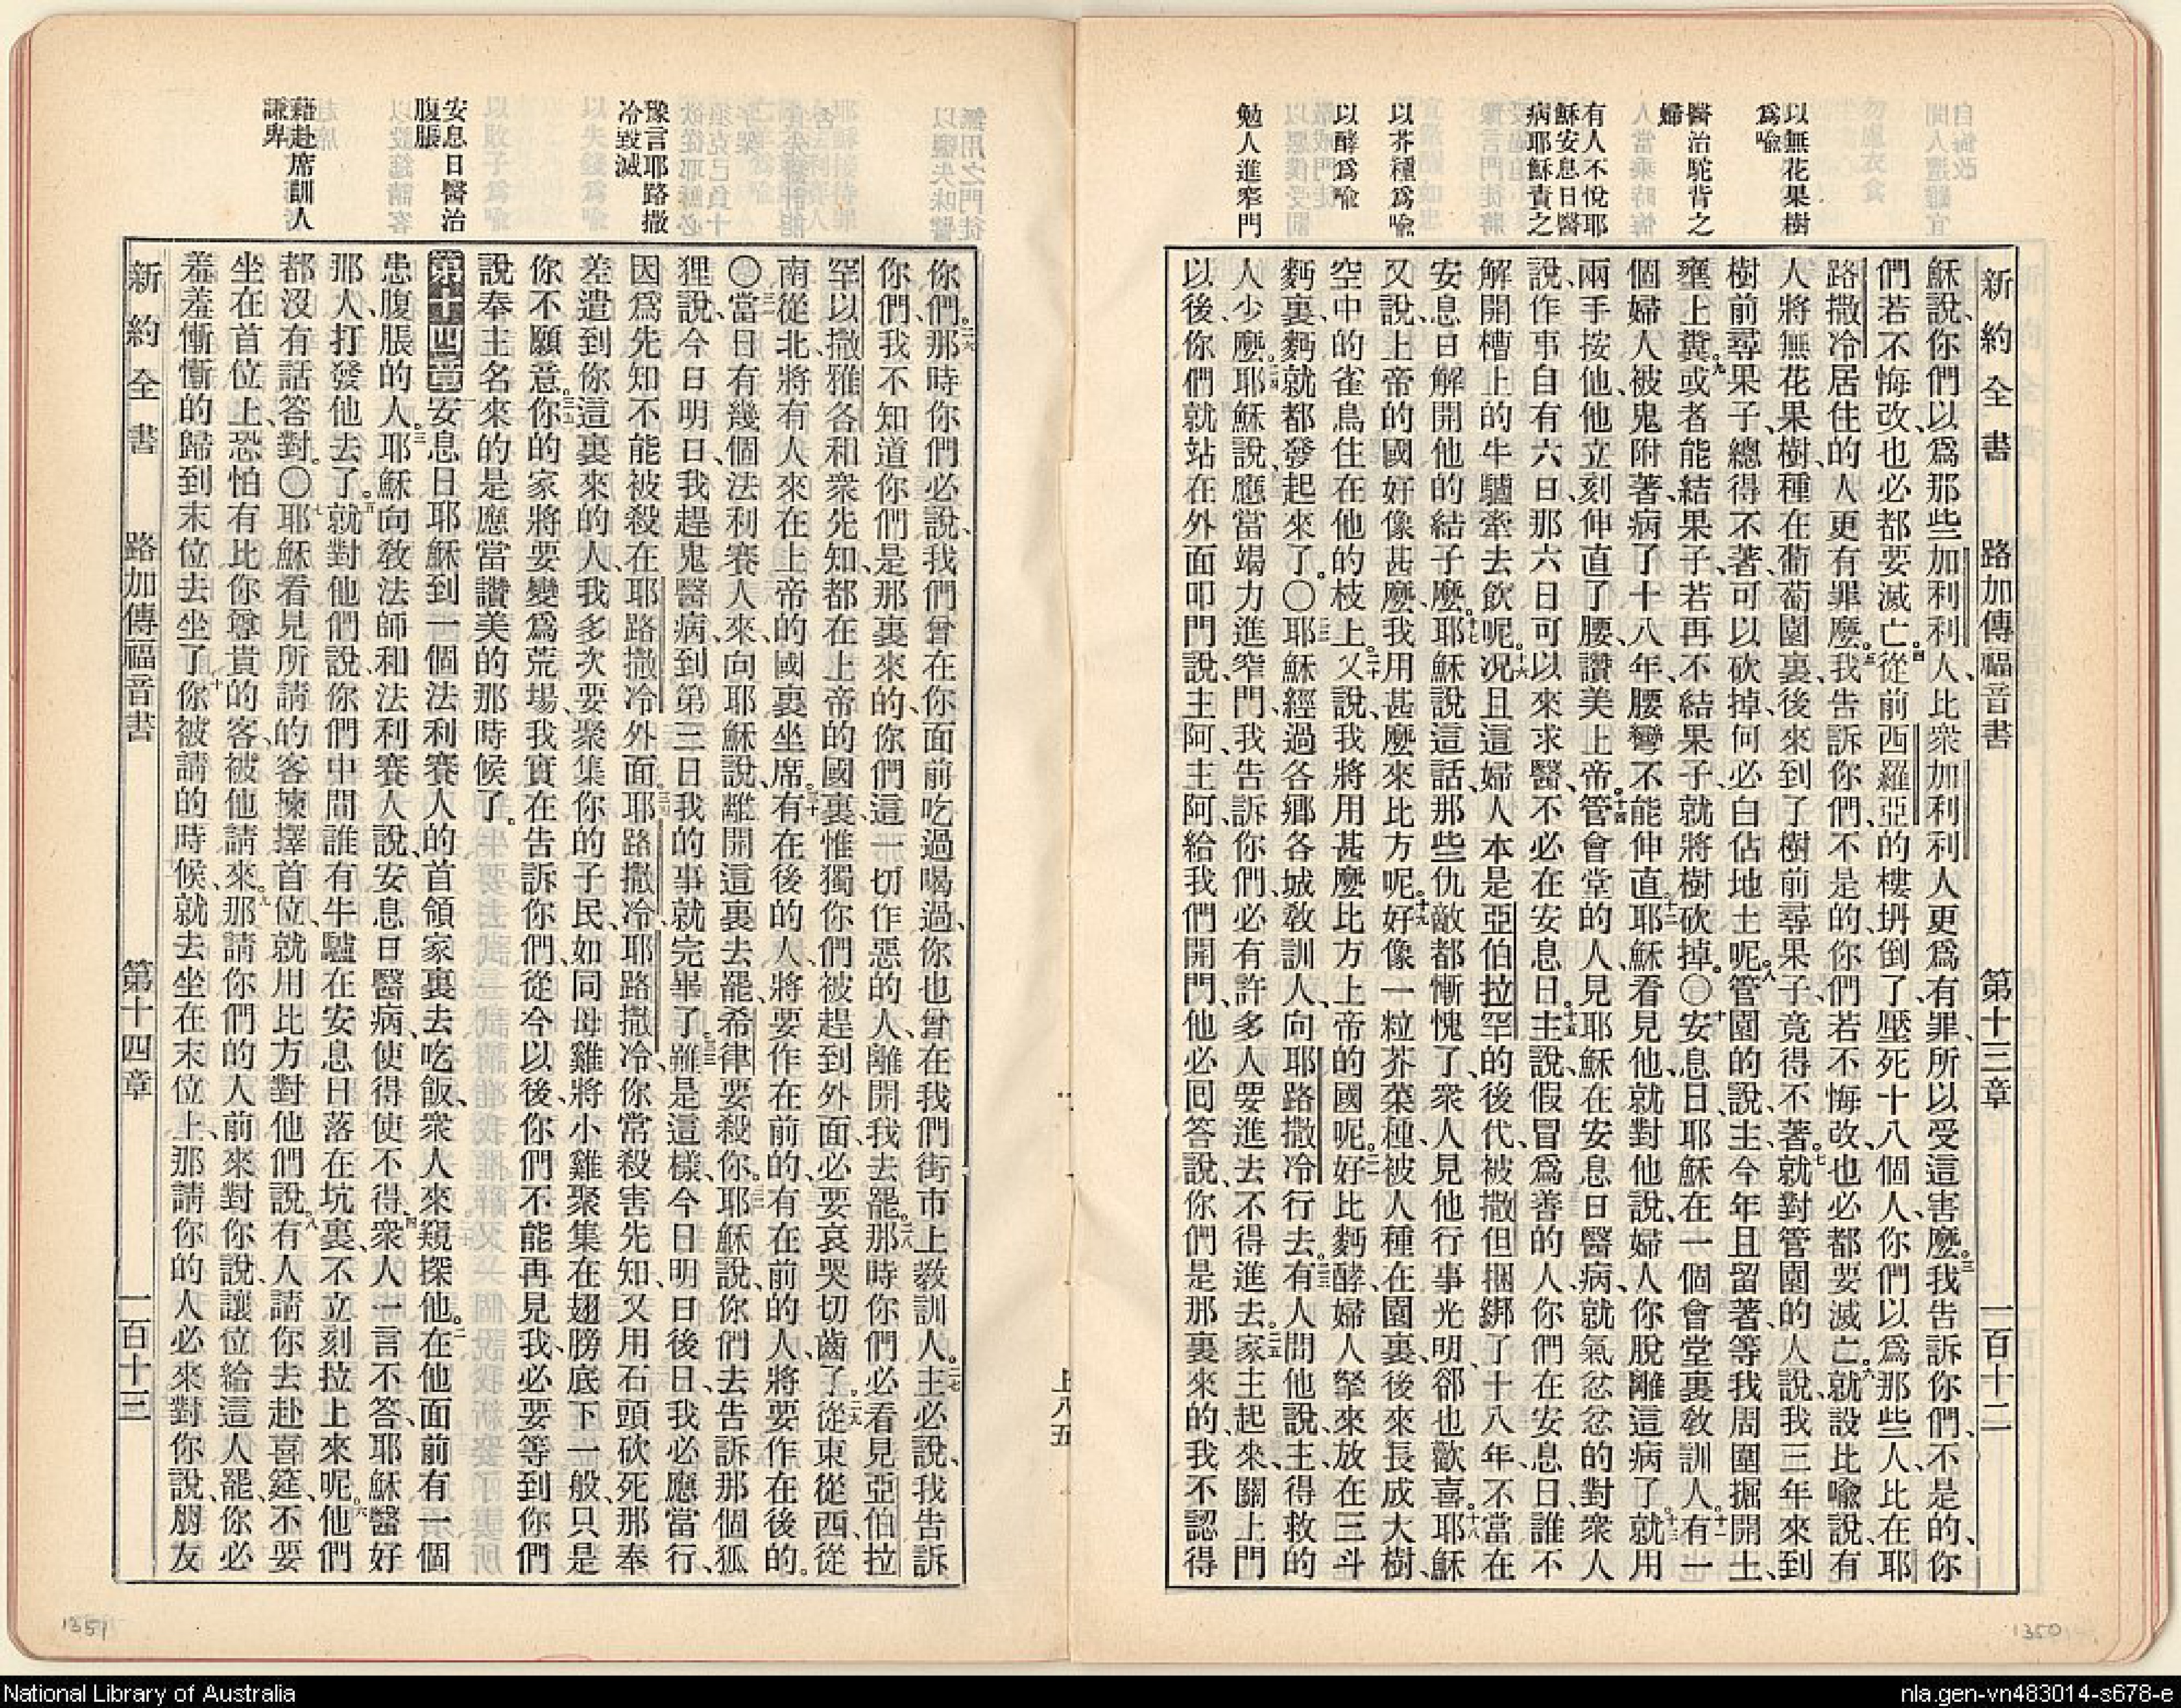 以無花果樹
爲喩
醫治駝背之
婦
有人不悅耶
穌安息日醫
病耶穌責之
以芥種爲喩
以酵爲喩
勉人進窄門
新約全書 路加傳福音書 第十三章 一百十二
穌說、你們以爲那些加利利人、比衆加利利人更爲有罪、所以受這害麼。三我告訴你們、不是的、你
們若不悔改、也必都要滅亡。四從前西羅亞的樓坍倒了、壓死十八個人、你們以爲那些人、比在耶
路撒冷居住的人更有罪麼。五我告訴你們、不是的、你們若不悔改、也必都要滅亡。六就設比喩說、有
人將無花果樹、種在葡萄園裏、後來到了樹前尋果子、竟得不著。七就對管園的人說、我三年來到
樹前尋果子、總得不著、可以砍掉、何必白佔地土呢。八管園的說、主、今年且留著、等我周圍掘開土、
壅上糞。九或者能結果子、若再不結果子、就將樹砍掉。〇十安息日、耶穌在一個會堂裏敎訓人。十一有一
個婦人被鬼附著、病了十八年、腰彎不能伸直。十二耶穌看見他、就對他說、婦人你脫離這病了。十三就用
兩手按他、他立刻伸直了腰、讚美上帝。十四管會堂的人、見耶穌在安息日醫病、就氣忿忿的對衆人
說、作事自有六日、那六日可以來求醫、不必在安息日。十五主說、假冒爲善的人、你們在安息日、誰不
解開槽上的牛驢牽去飲呢。十六况且這婦人本是亞伯拉罕的後代、被撒但捆綁了十八年、不當在
安息日解開他的結子麼。十七耶穌說這話、那些仇敵都慚愧了、衆人見他行事光明、都也歡喜。十八耶穌
又說、上帝的國好像甚麼、我用甚麼來比方呢。十九好像一粒芥菜種、被人種在園裏、後來長成大樹、
空中的雀鳥住在他的枝上。二十又說、我將用甚麼比方上帝的國呢。二一好比麪酵、婦人拏來放在三斗
麪裏、麪就都發起來了。〇二二耶穌經過各鄉各城敎訓人、向耶路撒冷行去。二三有人問他說、主、得救的
人少麼。二四耶穌說、應當竭力進窄門、我告訴你們、必有許多人要進去、不得進去。二五家主起來、關上門
以後、你們就站在外面叩門、說、主阿、主阿、給我們開門、他必回答說、你們是那裏來的、我不認得
1350
上八五
豫言耶路撒
冷毀滅
安息日醫治
腹脹
藉赴席訓人
謙卑
你們。二六那時你們必說、我們曾在你面前吃過喝過、你也曾在我們街市上敎訓人。二七主必說、我告訴
你們、我不知道你們是那裏來的、你們這一切作惡的人、離開我去罷。二八那時你們必看見亞伯拉
罕以撒雅各、和衆先知、都在上帝的國裏、惟獨你們被趕到外面、必要哀哭切齒了。二九從東從西、從
南從北、將有人來在上帝的國裏坐席。三十有在後的人、將要作在前的、有在前的人、將要作在後的。
〇三一當日有幾個法利賽人來、向耶穌說、離開這裏去罷、希律要殺你。三二耶穌說、你們去告訴那個狐
狸說、今日明日、我趕鬼醫病、到第三日我的事就完畢了。三三雖是這樣、今日明日後日、我必應當行、
因爲先知不能被殺在耶路撒冷外面。三四耶路撒冷、耶路撒冷、你常殺害先知、又用石頭砍死那奉
差遣到你這裏來的人、我多次要聚集你的子民、如同母雞將小雞聚集在翅膀底下一般、只是
你不願意。三五你的家將要變爲荒場、我實在告訴你們、從今以後、你們不能再見我、必要等到你們
說奉主名來的、是應當讚美的那時候了。
第十四章 一安息日、耶穌到一個法利賽人的首領家裏去吃飯、衆人來窺探他。二在他面前有一個
患腹脹的人。三耶穌向敎法師和法利賽人說、安息日醫病、使得使不得。四衆人一言不答、耶穌醫好
那人、打發他去了。五就對他們說、你們中間誰有牛驢、在安息日落在坑裏、不立刻拉上來呢。六他們
都沒有話答對。〇七耶穌看見所請的客揀擇首位、就用比方對他們說。八有人請你去赴喜筵、不要
坐在首位上、恐怕有比你尊貴的客、被他請來。九那請你們的人前來對你說、讓位給這人罷、你必
羞羞慚慚的歸到末位去坐了。十你被請的時候、就去坐在末位上、那請你的人必來對你說、朋友
新約全書 路加傳福音書 第十四章 一百十三
1351
National Library of Australia
nla.gen-vn483014-s678-e